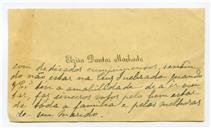 Elzira Dantas Machado
com dedicados cumprimentos, sentin-
do não estar na Cruz Quebrada quando
teve a amabilidade de a ir visi-
tar, faz sinceros votos pelo bem estar
de toda a familia e pelas melhoras
do seu marido.